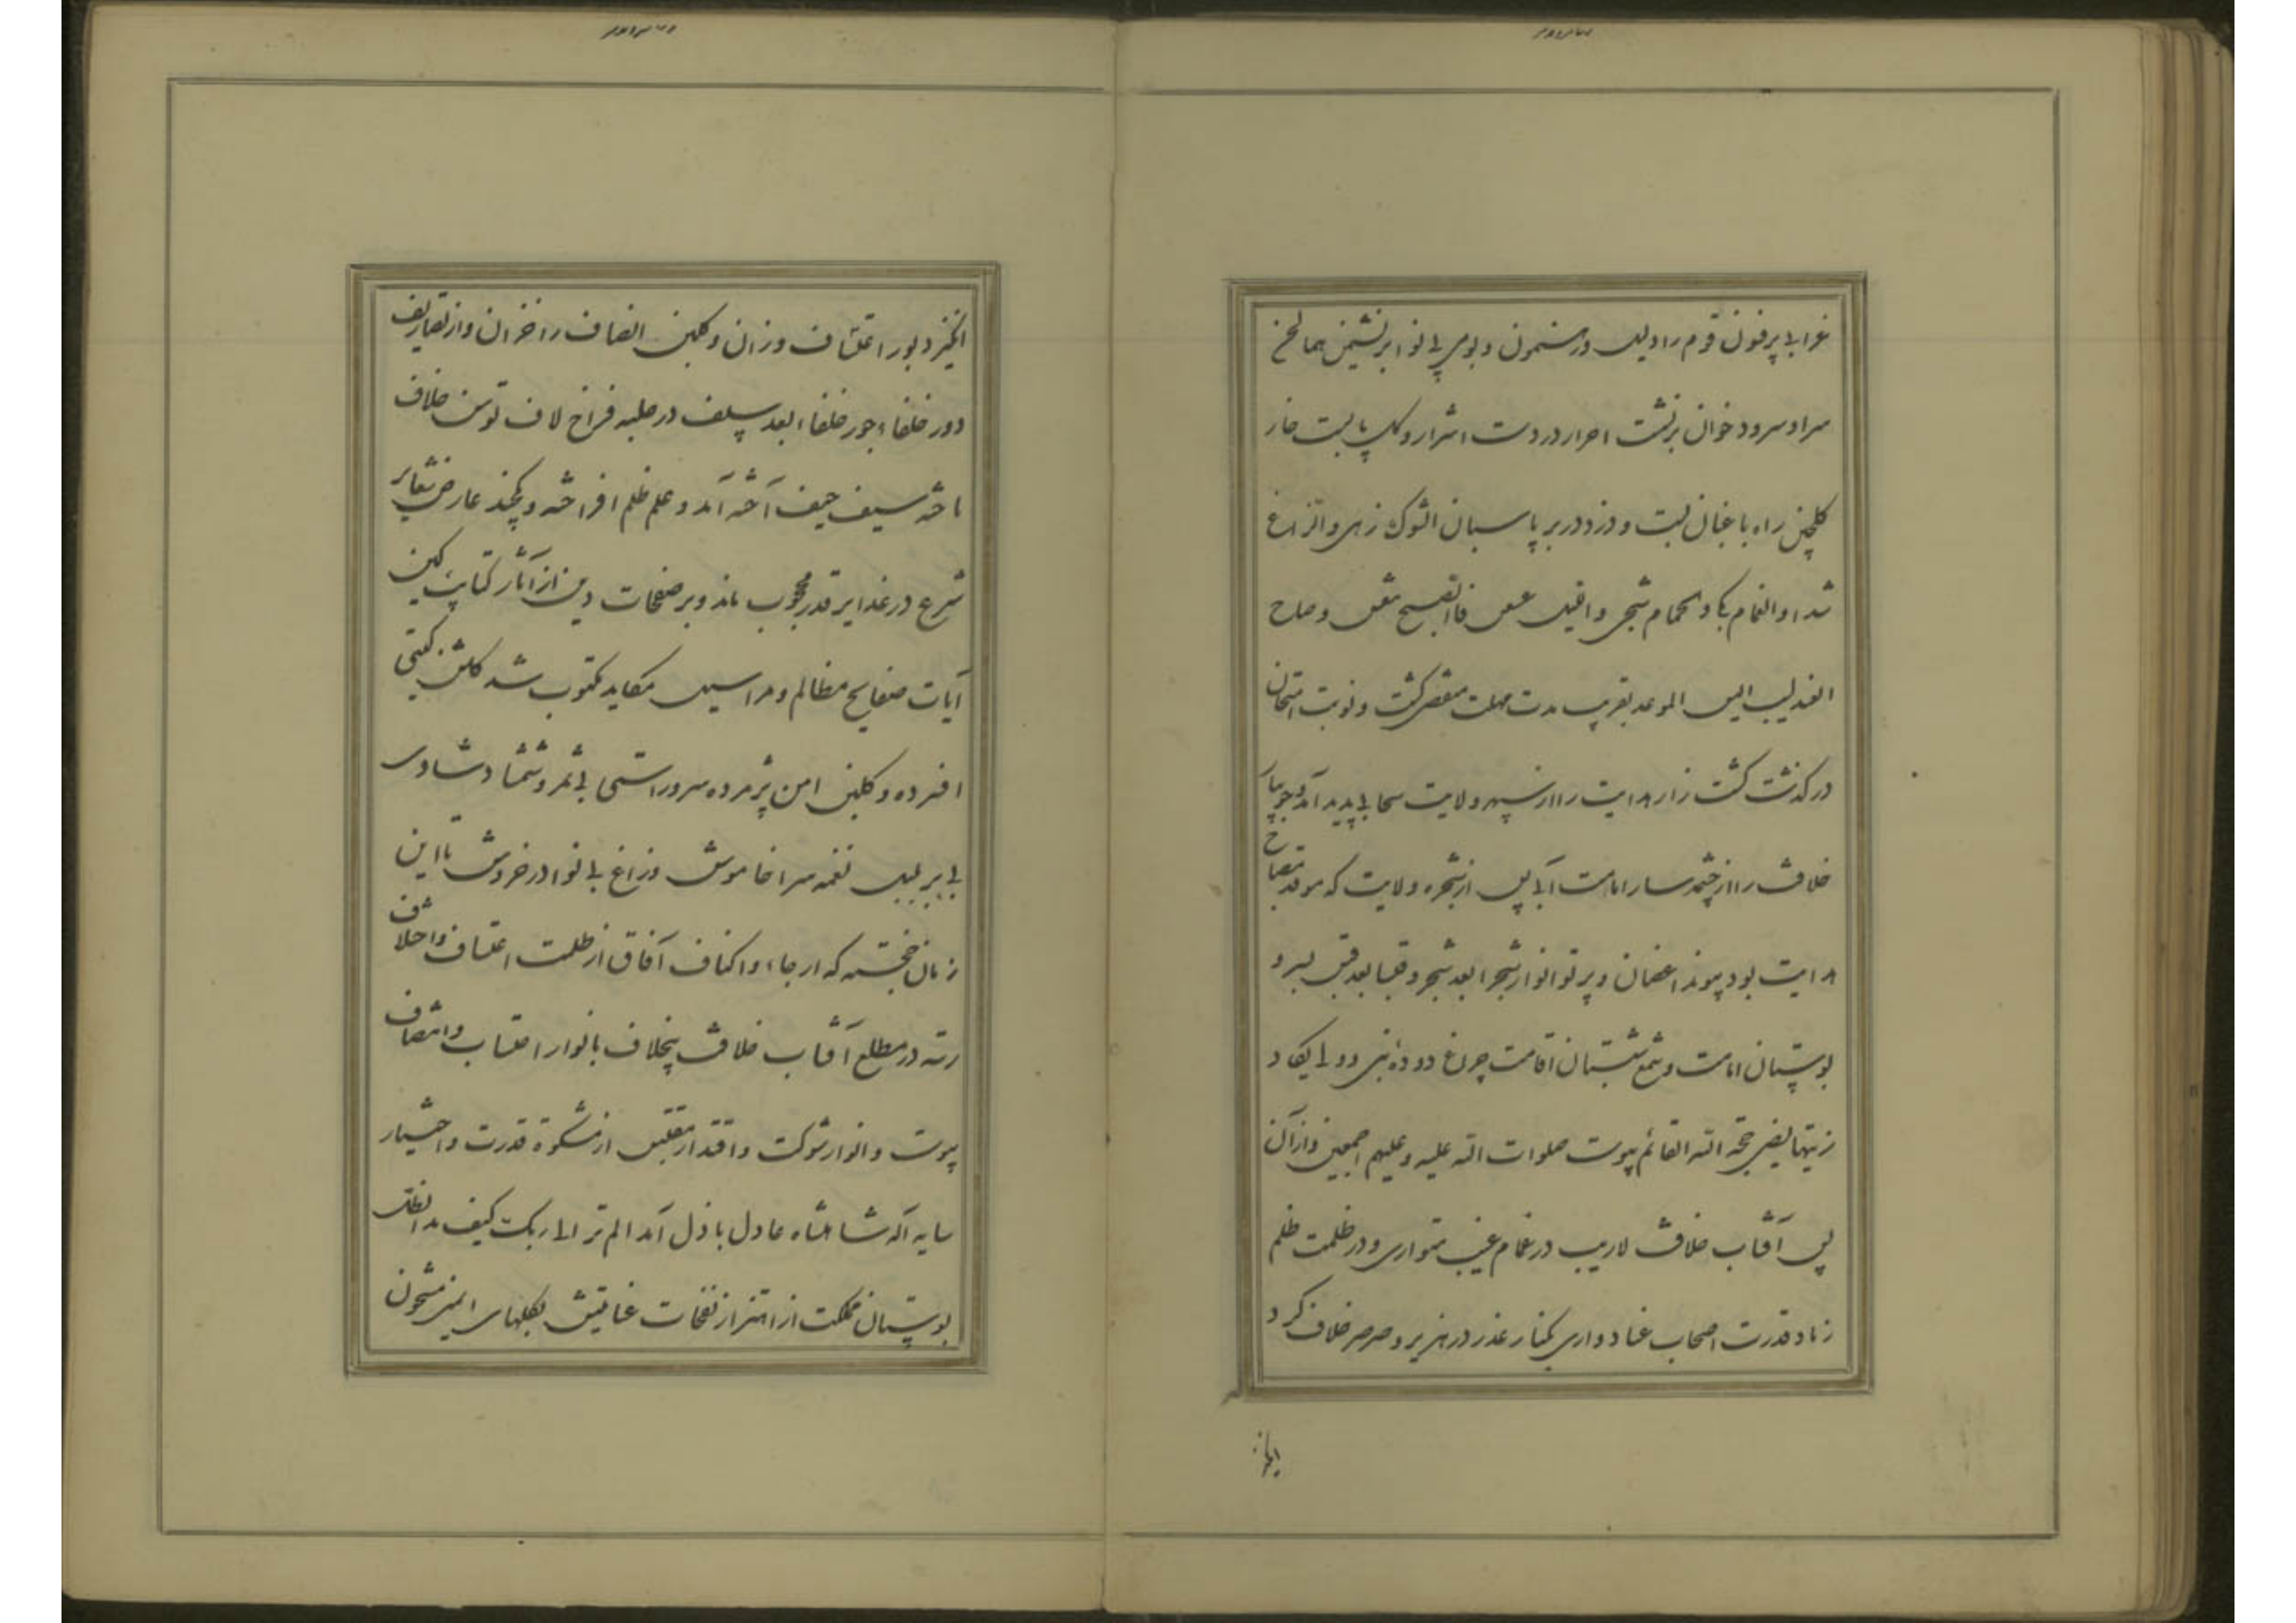 غرابی پرفنون قوم را دلیل و رهنمون و بومی بی نوا بر نشیمن هما لحن
سرا و سرود خوان برنشست احرار در دست اشرار و گل پابست خار
گلچین راه باغبان بست و دزد در بر پاسبان الشوک زهی و الزاغ
شدا و الغمام بکی و الحمام شجی و اللیل عسعس فاالصبح تنفس و صاح
العندلیب الیس الموعد بقریب مدت مهلت منقضی گشت و نوبت امتحان
درگذشت کشت زار هدایت را از سپهر ولایت سحابی پدید آمد و جویبار
خلافت را از چشمه سار امامت آبی پس از شجره ولایت که موقد مصباح
هدایت بود پیوند اغصان و پرتو انوار شجرا بعد شجر و قبسا بعد قبس بسرو
بوستان امامت و شمع شبستان اقامت چراغ دوده نبی و ولی یکاد
زیتها یضیء حجة الله القائم پیوست صلوات الله علیه و علیهم اجمعین و از آن
پس آفتاب خلافت لاریب در غمام غیب متواری و در ظلمت ظلم
زناد قدرت اصحاب عناد واری بکنار غدر در هزبر و صرصر خلاف گرد
انگیز دبور اعتساف وزان و گلبن انصاف را خزان و از تصاریف
دور خلفا و جور خلفاء بعد سلف در حلبه فراخ لاف توسن خلاف
تاخته سیف حیف آخته آمد و علم ظلم افراخته و یکچند عارض شعایر
شرع در غدایر قدر محجوب ماند و بر صفحات دمن از آثار کتایب کین
آیات صفایح مظالم و مراسیل مکاید مکتوب شد گلشن گیتی
افسرده و گلبن امن پژمرده سرو راستی بی ثمر و شمشاد شادی
بی بر بلبل نغمه سرا خاموش و زاغ بی نوا در خروش تا این
زمان خجسته که ارجاء و اکناف آفاق از ظلمت اعتساف و اختلاف
رسته در مطلع آفتاب خلافت بیخلاف بانوار احتساب و انتصاف
پیوست و انوار شوکت و اقتدار مقتبس از مشکوة قدرت و اختیار
سایه اله شاهنشاه عادل باذل آمد الم تر الی ربک کیف مد الظل
بوستان مملکت از اهتزاز نفحات عنایتش بگلهای ایمنی مشحون